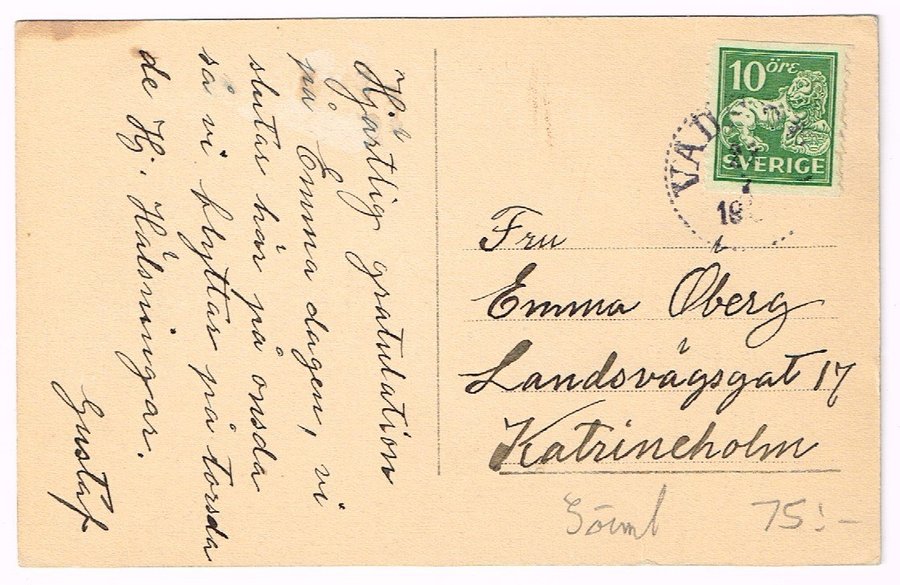 Hjärtlig gratulation
på Emma dagen, vi
slutar här på onsda
så vi flyttar på torsda
de Hj. Hälsningar.
Gustaf
10 öre
SVERIGE
VAD
19
Fru
Emma Öberg
Landsvägsgat 17
Katrineholm
75:-